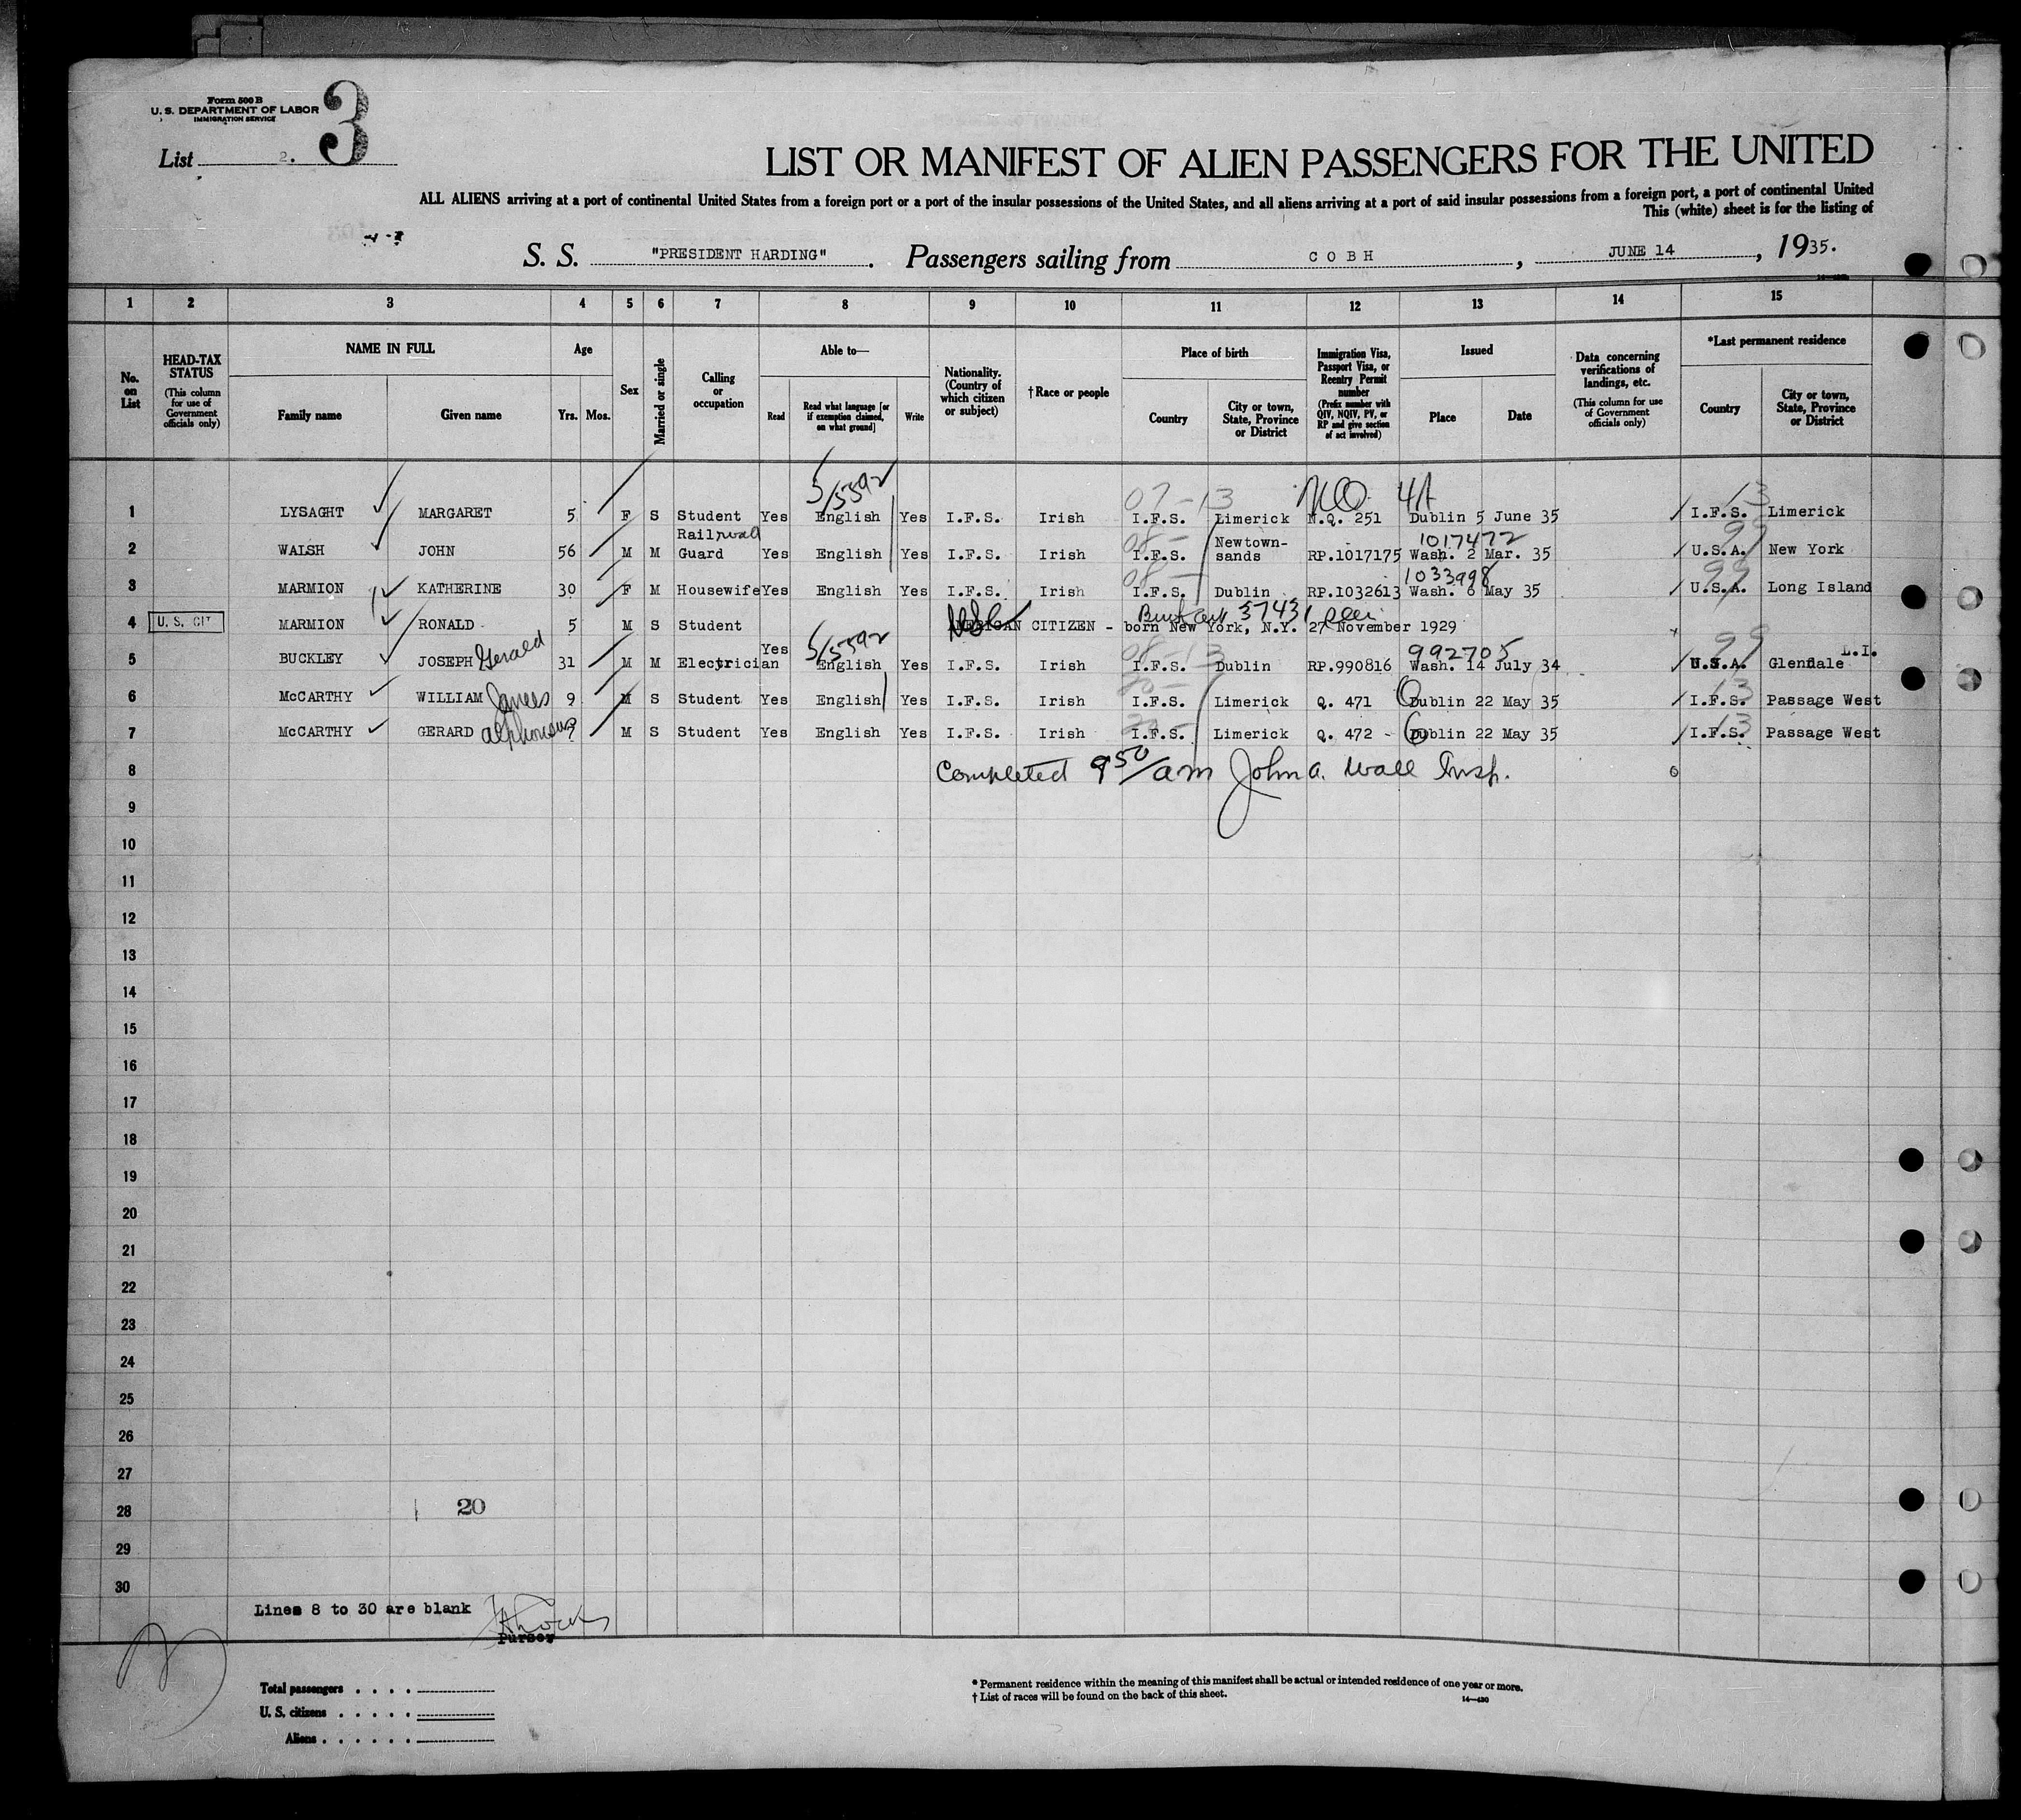 Form 500 B
U. S. DEPARTMENT OF LABOR
IMMIGRATION SERVICE
3
List 2.
LIST OR MANIFEST OF ALIEN PASSENGERS FOR THE UNITED
ALL ALIENS arriving at a port of continental United States from a foreign port or a port of the insular possessions of the United States, and all aliens arriving at a port of said insular possessions from a foreign port, a port of continental United
This (white) sheet is for the listing of
S. S. "PRESIDENT HARDING". Passengers sailing from COBH, JUNE 14, 1935.
1 2 3 4 5 6 7 8 9 10 11 12 13 14 15
No. on List
HEAD-TAX STATUS (This column for use of Government officials only)
NAME IN FULL Family name Given name
Age Yrs. Mos.
Sex
Married or single
Calling or occupation
Able to— Read Read what language [or if exemption claimed, on what ground] Write
Nationality. (Country of which citizen or subject)
† Race or people
Place of birth Country City or town, State, Province or District
Immigration Visa, Passport Visa, or Reentry Permit number (Prefix number with QIV, NQIV, PV, or RP and give section of act involved)
Issued Place Date
Data concerning verifications of landings, etc. (This column for use of Government officials only)
*Last permanent residence Country City or town, State, Province or District
5/5592 07-13 NQ 4A 13
1 LYSAGHT MARGARET 5 F S Student Yes English Yes I.F.S. Irish I.F.S. Limerick N.Q. 251 Dublin 5 June 35 I.F.S. Limerick
Railroad 08- Newtown- 1017472 99
2 WALSH JOHN 56 M M Guard Yes English Yes I.F.S. Irish I.F.S. sands RP.1017175 Wash. 2 Mar. 35 U.S.A. New York
08- 1033998 99
3 MARMION KATHERINE 30 F M Housewife Yes English Yes I.F.S. Irish I.F.S. Dublin RP.1032613 Wash. 6 May 35 U.S.A. Long Island
57431
4 U. S. CIT MARMION RONALD 5 M S Student AMERICAN CITIZEN - born New York, N.Y. 27 November 1929
5/5592 08-13 992705 99 L.I.
5 BUCKLEY JOSEPH Gerald 31 M M Electrician Yes English Yes I.F.S. Irish I.F.S. Dublin RP.990816 Wash. 14 July 34 U.S.A. Glendale
13
6 McCARTHY WILLIAM James 9 M S Student Yes English Yes I.F.S. Irish I.F.S. Limerick Q. 471 Dublin 22 May 35 I.F.S. Passage West
13
7 McCARTHY GERARD Alphonsus 7 M S Student Yes English Yes I.F.S. Irish I.F.S. Limerick Q. 472 - Dublin 22 May 35 I.F.S. Passage West
8 Completed 9 50/am John A. Wall Insp.
9
10
11
12
13
14
15
16
17
18
19
20
21
22
23
24
25
26
27
28 20
29
30
Lines 8 to 30 are blank
Purser
Total passengers . . . .
U. S. citizens . . . . .
Aliens . . . . . .
* Permanent residence within the meaning of this manifest shall be actual or intended residence of one year or more.
† List of races will be found on the back of this sheet.
14—430